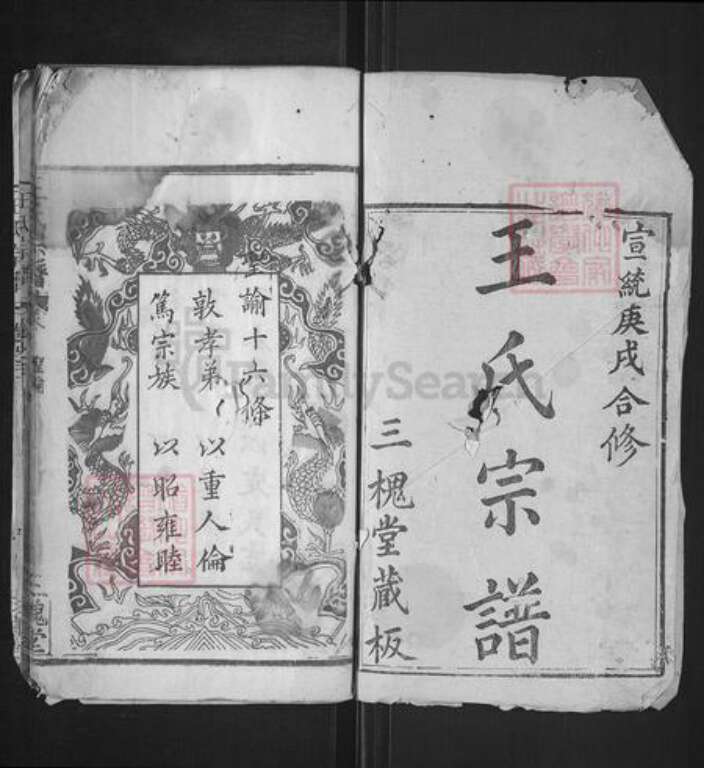 宣統庚戌合修
王氏宗譜
三槐堂藏板
聖諭十六條
敦孝弟 以重人倫
篤宗族 以昭雍睦
FamilySearch
槐堂